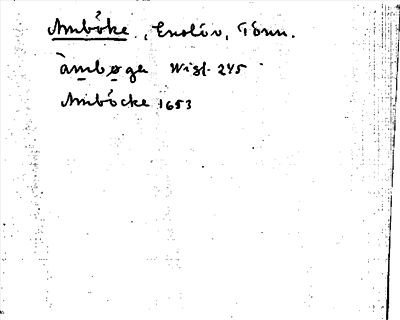 Amböke, Enslöv, Tönn.
àmbøga Wigf. 245
Amböcke 1653